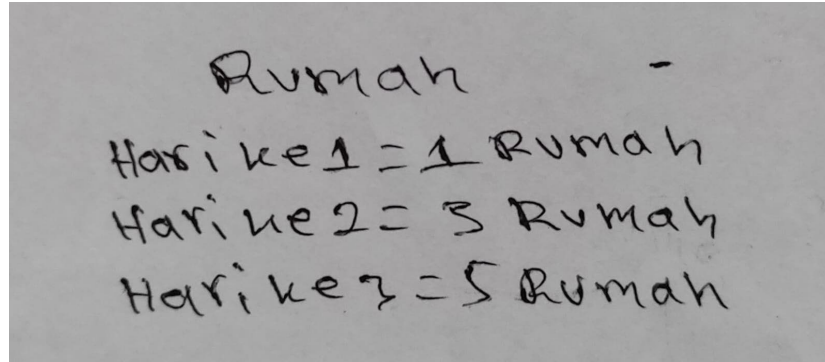 Rumah
Hari ke 1 = 1 Rumah
Hari ke 2 = 3 Rumah
Hari ke 3 = 5 Rumah